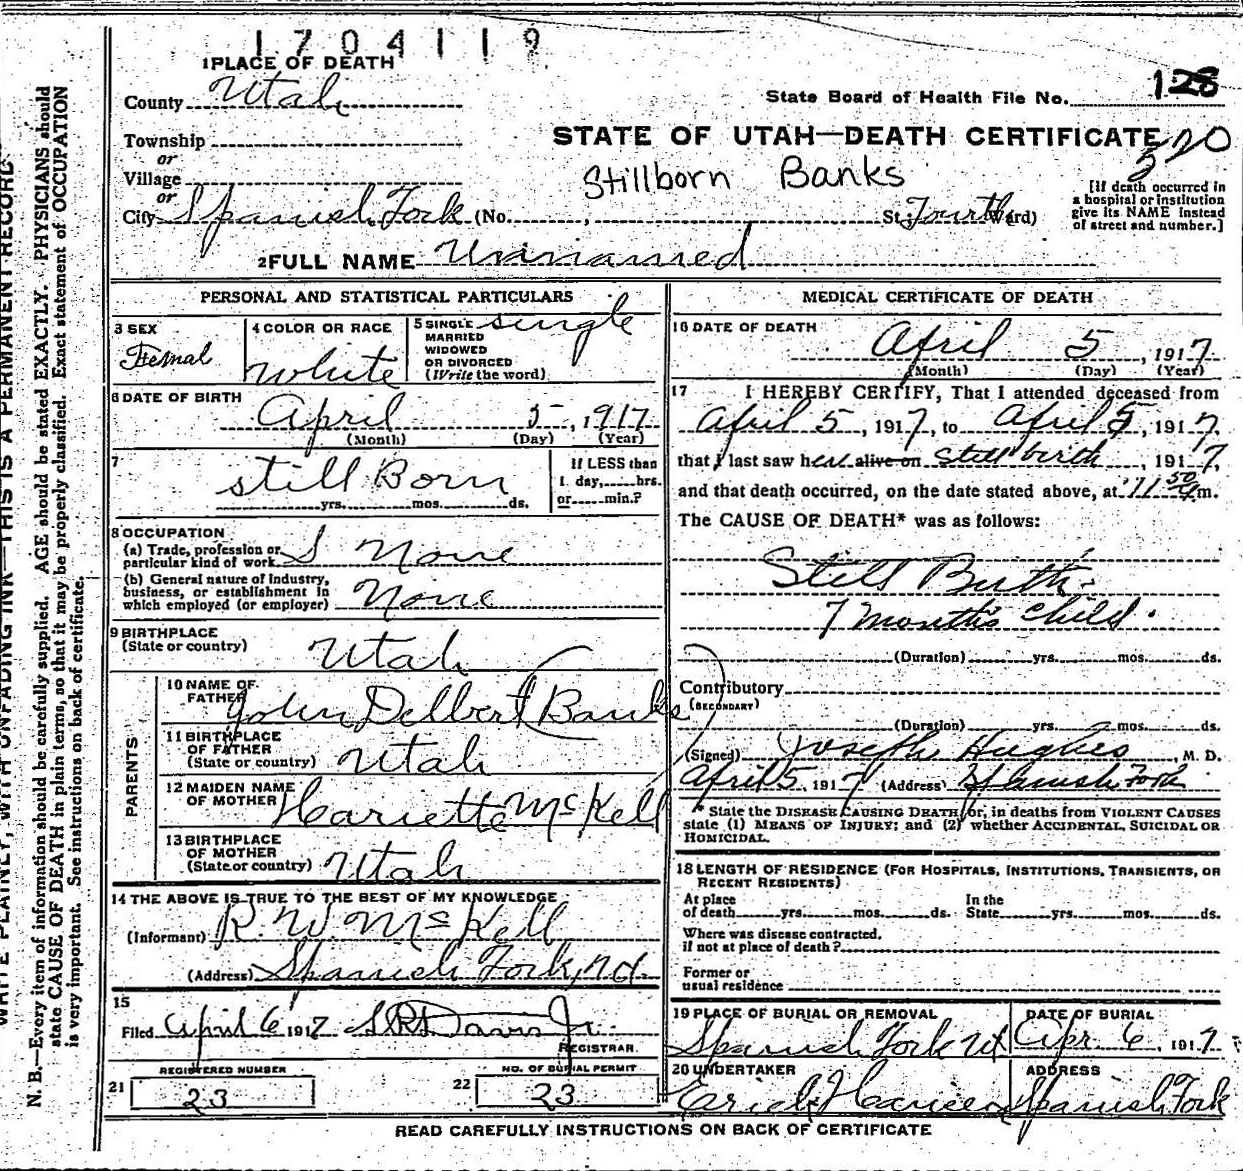 1704119
1 PLACE OF DEATH
County Utah
State Board of Health File No. 128
Township
STATE OF UTAH—DEATH CERTIFICATE
520
or
Village
Stillborn Banks
or
City Spanish Fork (No. , St. Fourth Ward)
[If death occurred in
a hospital or institution
give its NAME instead
of street and number.]
2 FULL NAME Unnamed
PERSONAL AND STATISTICAL PARTICULARS
3 SEX
Femal
4 COLOR OR RACE
White
5 SINGLE
MARRIED
WIDOWED
OR DIVORCED
(Write the word)
single
6 DATE OF BIRTH
April 5, 1917
(Month) (Day) (Year)
7
still Born
yrs. mos. ds.
If LESS than
1 day, hrs.
or min.?
8 OCCUPATION
(a) Trade, profession or
particular kind of work None
(b) General nature of Industry,
business, or establishment in
which employed (or employer) None
9 BIRTHPLACE
(State or country) Utah
PARENTS
10 NAME OF
FATHER John Delbert Banks
11 BIRTHPLACE
OF FATHER
(State or country) Utah
12 MAIDEN NAME
OF MOTHER Harriette McKell
13 BIRTHPLACE
OF MOTHER
(State or country) Utah
14 THE ABOVE IS TRUE TO THE BEST OF MY KNOWLEDGE
(Informant) R. W. McKell
(Address) Spanish Fork, Ut.
15
Filed April 6 1917 Davis Jr.
REGISTRAR.
REGISTERED NUMBER
21 23
NO. OF BURIAL PERMIT
22 23
MEDICAL CERTIFICATE OF DEATH
16 DATE OF DEATH
April 5, 1917
(Month) (Day) (Year)
17 I HEREBY CERTIFY, That I attended deceased from
April 5, 1917, to April 5, 1917,
that I last saw her alive on Still birth, 1917,
and that death occurred, on the date stated above, at 11 50 m.
The CAUSE OF DEATH* was as follows:
Still Birth
7 months child.
(Duration) yrs. mos. ds.
Contributory
(SECONDARY)
(Duration) yrs. mos. ds.
(Signed) Joseph Hughes, M. D.
April 5, 1917 (Address) Spanish Fork
* State the DISEASE CAUSING DEATH, or, in deaths from VIOLENT CAUSES
state (1) MEANS OF INJURY; and (2) whether ACCIDENTAL, SUICIDAL OR
HOMICIDAL.
18 LENGTH OF RESIDENCE (FOR HOSPITALS, INSTITUTIONS, TRANSIENTS, OR
RECENT RESIDENTS)
At place
of death yrs. mos. ds.
In the
State yrs. mos. ds.
Where was disease contracted,
if not at place of death?
Former or
usual residence
19 PLACE OF BURIAL OR REMOVAL
Spanish Fork Ut
DATE OF BURIAL
Apr. 6, 1917
20 UNDERTAKER
Erick Hansen
ADDRESS
Spanish Fork
READ CAREFULLY INSTRUCTIONS ON BACK OF CERTIFICATE
WRITE PLAINLY, WITH UNFADING INK—THIS IS A PERMANENT RECORD
N. B.—Every item of information should be carefully supplied. AGE should be stated EXACTLY. PHYSICIANS should
state CAUSE OF DEATH in plain terms, so that it may be properly classified. Exact statement of OCCUPATION
is very important. See instructions on back of certificate.